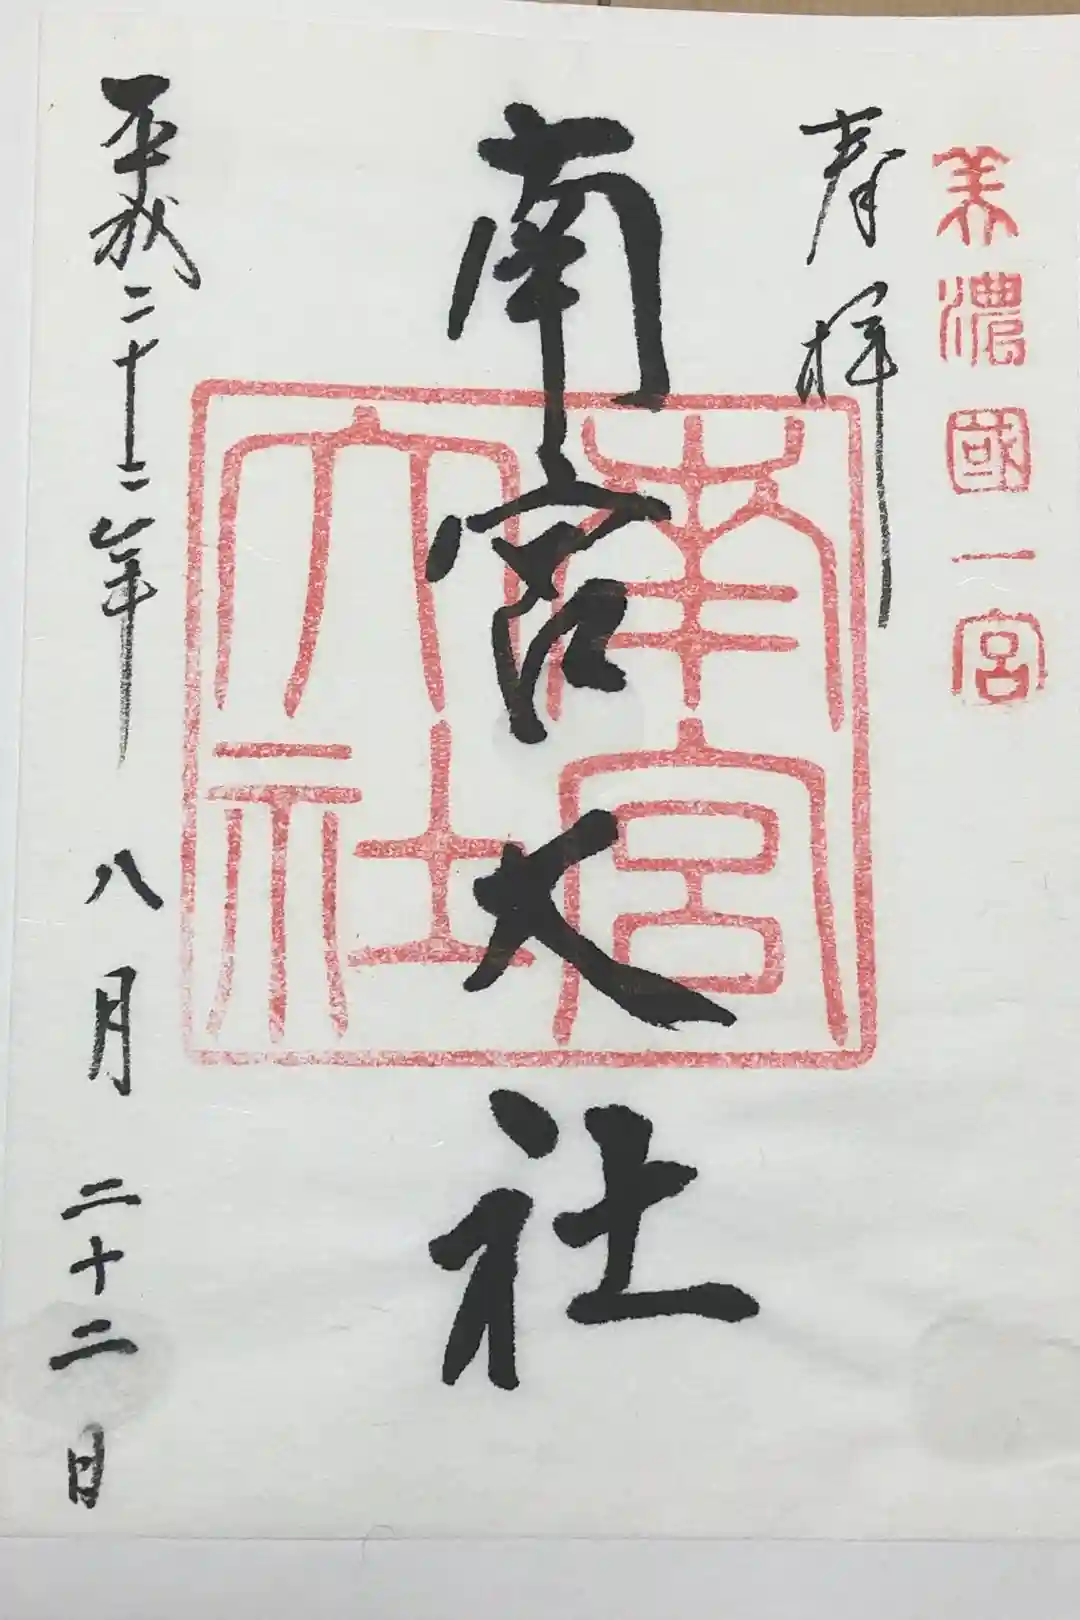 美濃國一宮
奉拝
南宮大社
南宮大社
平成二十二年八月二十二日